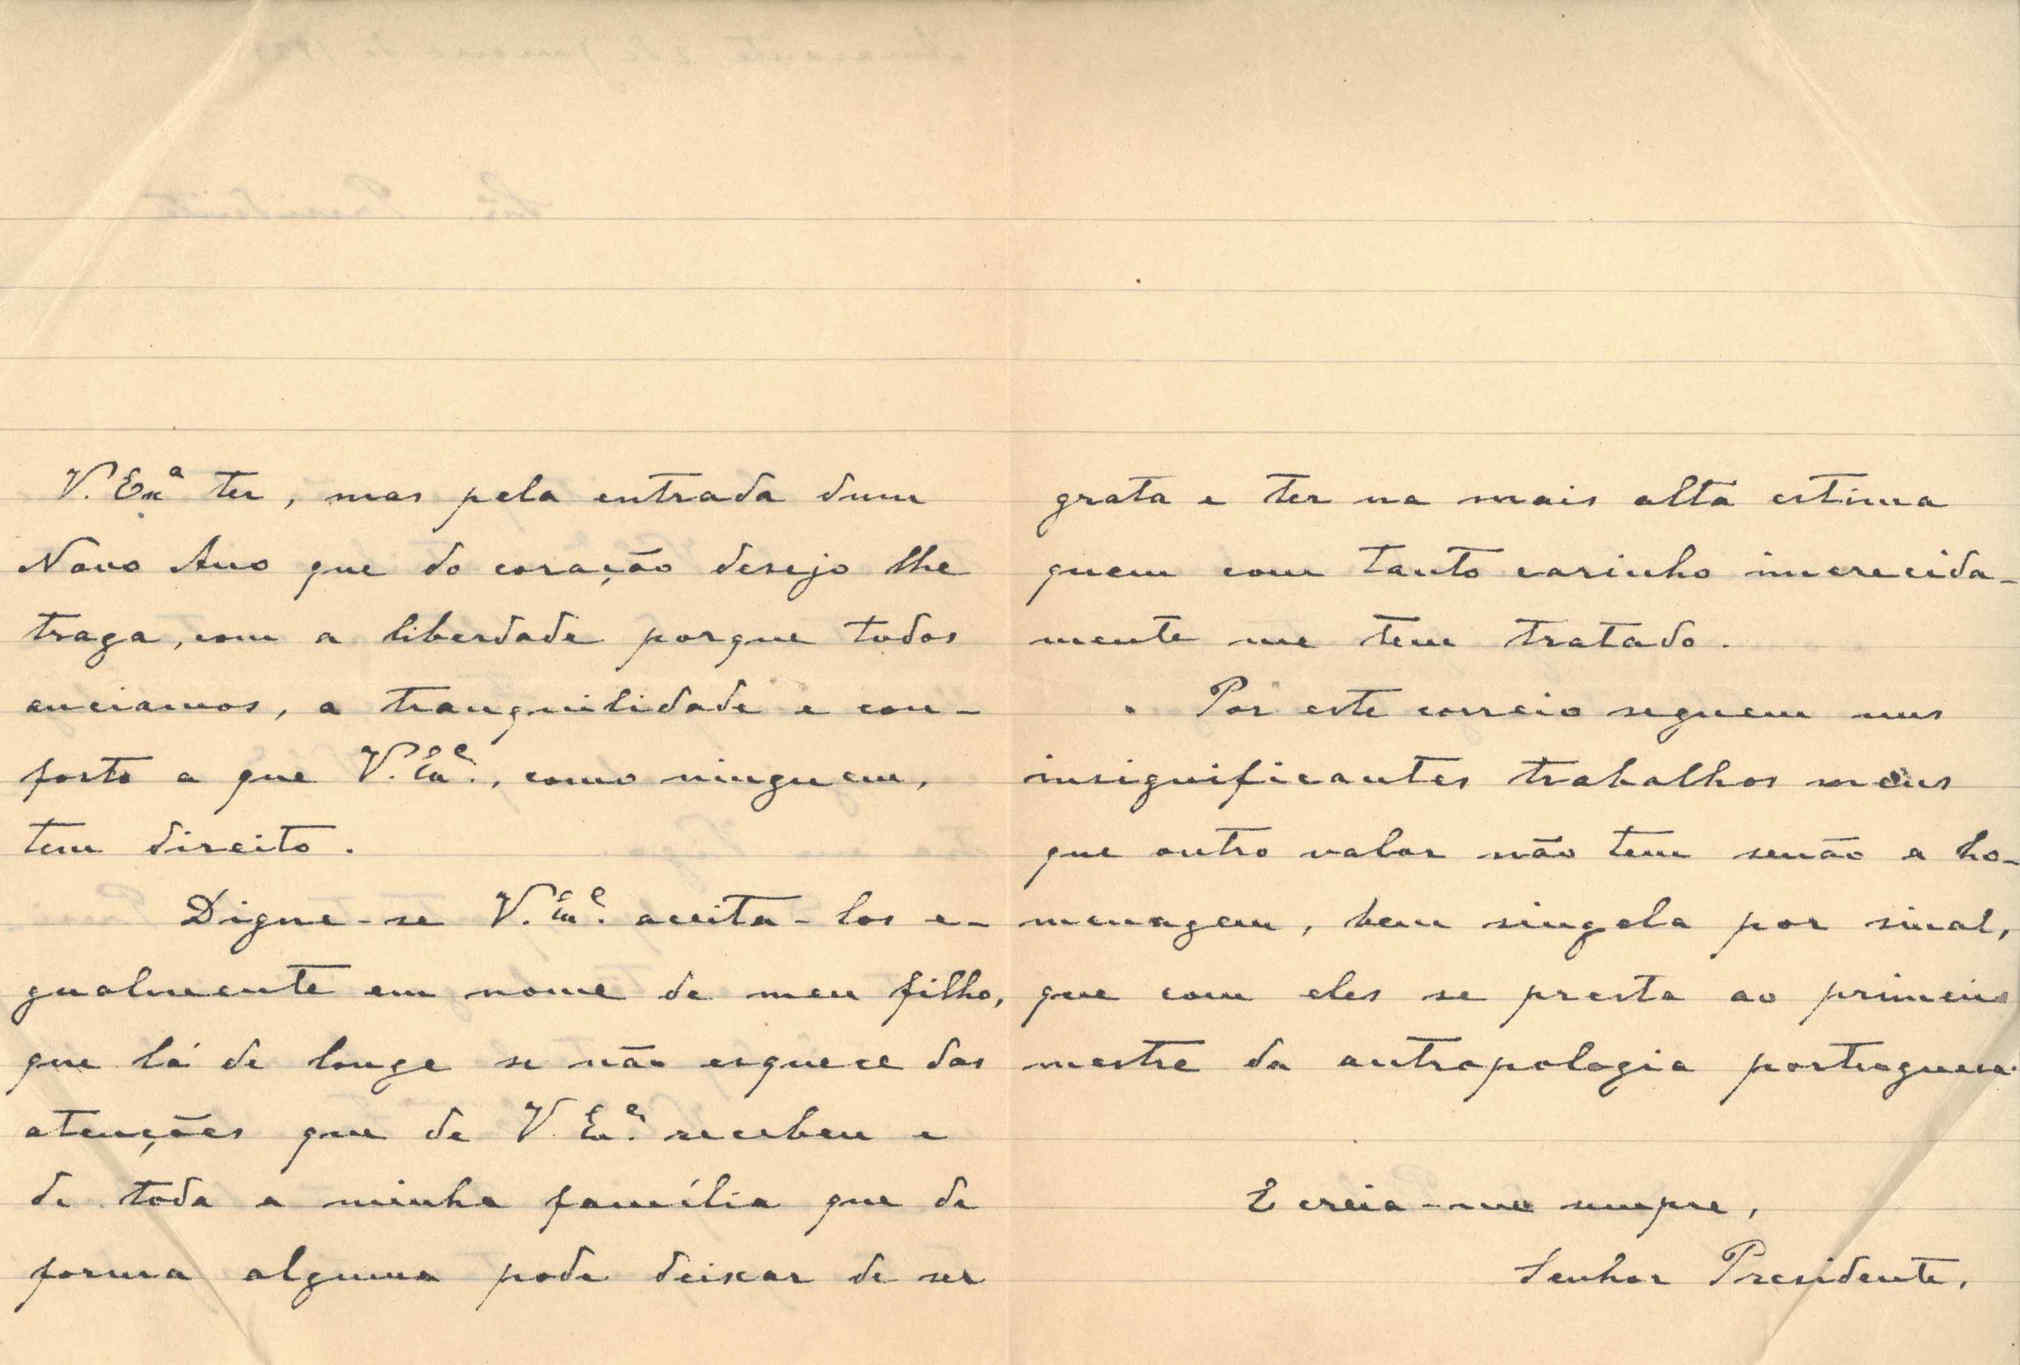 V. Exª ter, mas pela entrada dum
Novo Ano que do coração desejo lhe
traga, com a liberdade porque todos
anciamos, a tranquilidade e con-
forto a que V. Exª., como ninguem,
tem direito.
Digne-se V. Exª. aceita-los e-
gualmente em nome de meu filho,
que lá de longe se não esquece das
atenções que de V. Exª. recebeu e
de toda a minha família que de
forma alguma pode deixar de ser
grata e ter na mais alta estima
quem com tanto carinho imerecida-
mente me tem tratado.
Por este correio seguem uns
insignificantes trabalhos meus
que outro valor não tem senão a ho-
menagem, bem singela por sinal,
que com eles se presta ao primeiro
mestre da antropologia portuguesa.
E creia-me sempre,
Senhor Presidente,